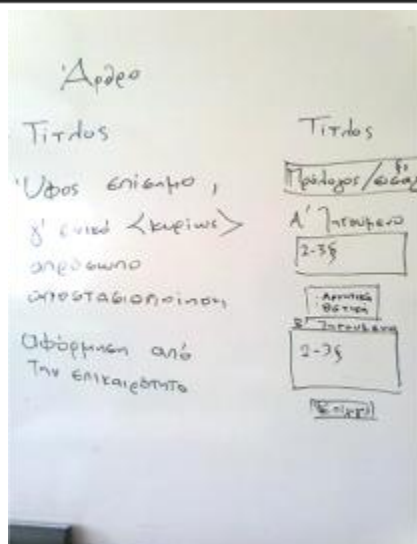 Άρθρο
Τίτλος
Ύφος επίσημο,
γ' ενικό <κυρίως>
απρόσωπο
αποστασιοποίηση
αφόρμηση από
Την επικαιρότητα
Τίτλος
Πρόλογος/
Α' Ζητούμενο
2-3§
Αρνητικά
Θετικά
Β' Ζητούμενο
2-3§